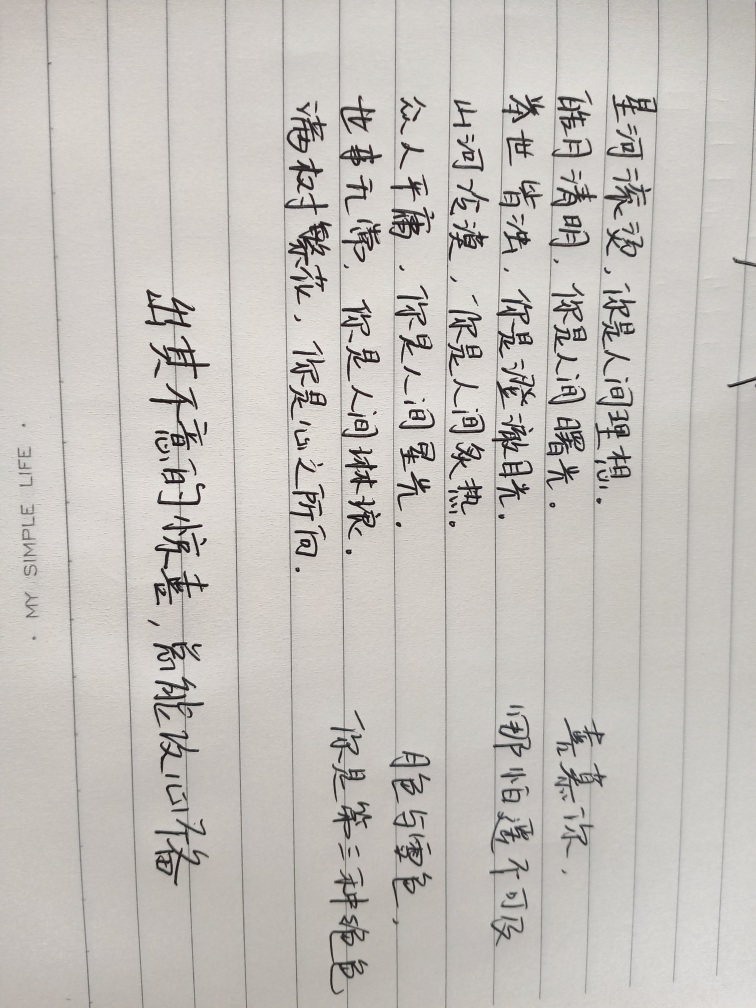 星河滚烫,你是人间理想。
皓月清明,你是人间曙光。
举世皆浊,你是澄澈目光。
山河冷漠,你是人间炙热。
众人平庸,你是人间星光。
世事无常,你是人间琳琅。
满树繁花,你是心之所向。
喜慕你,
哪怕遥不可及
月色与雪色,
你是第三种绝色
出其不意的惊喜,总能攻心不备
· MY SIMPLE LIFE ·